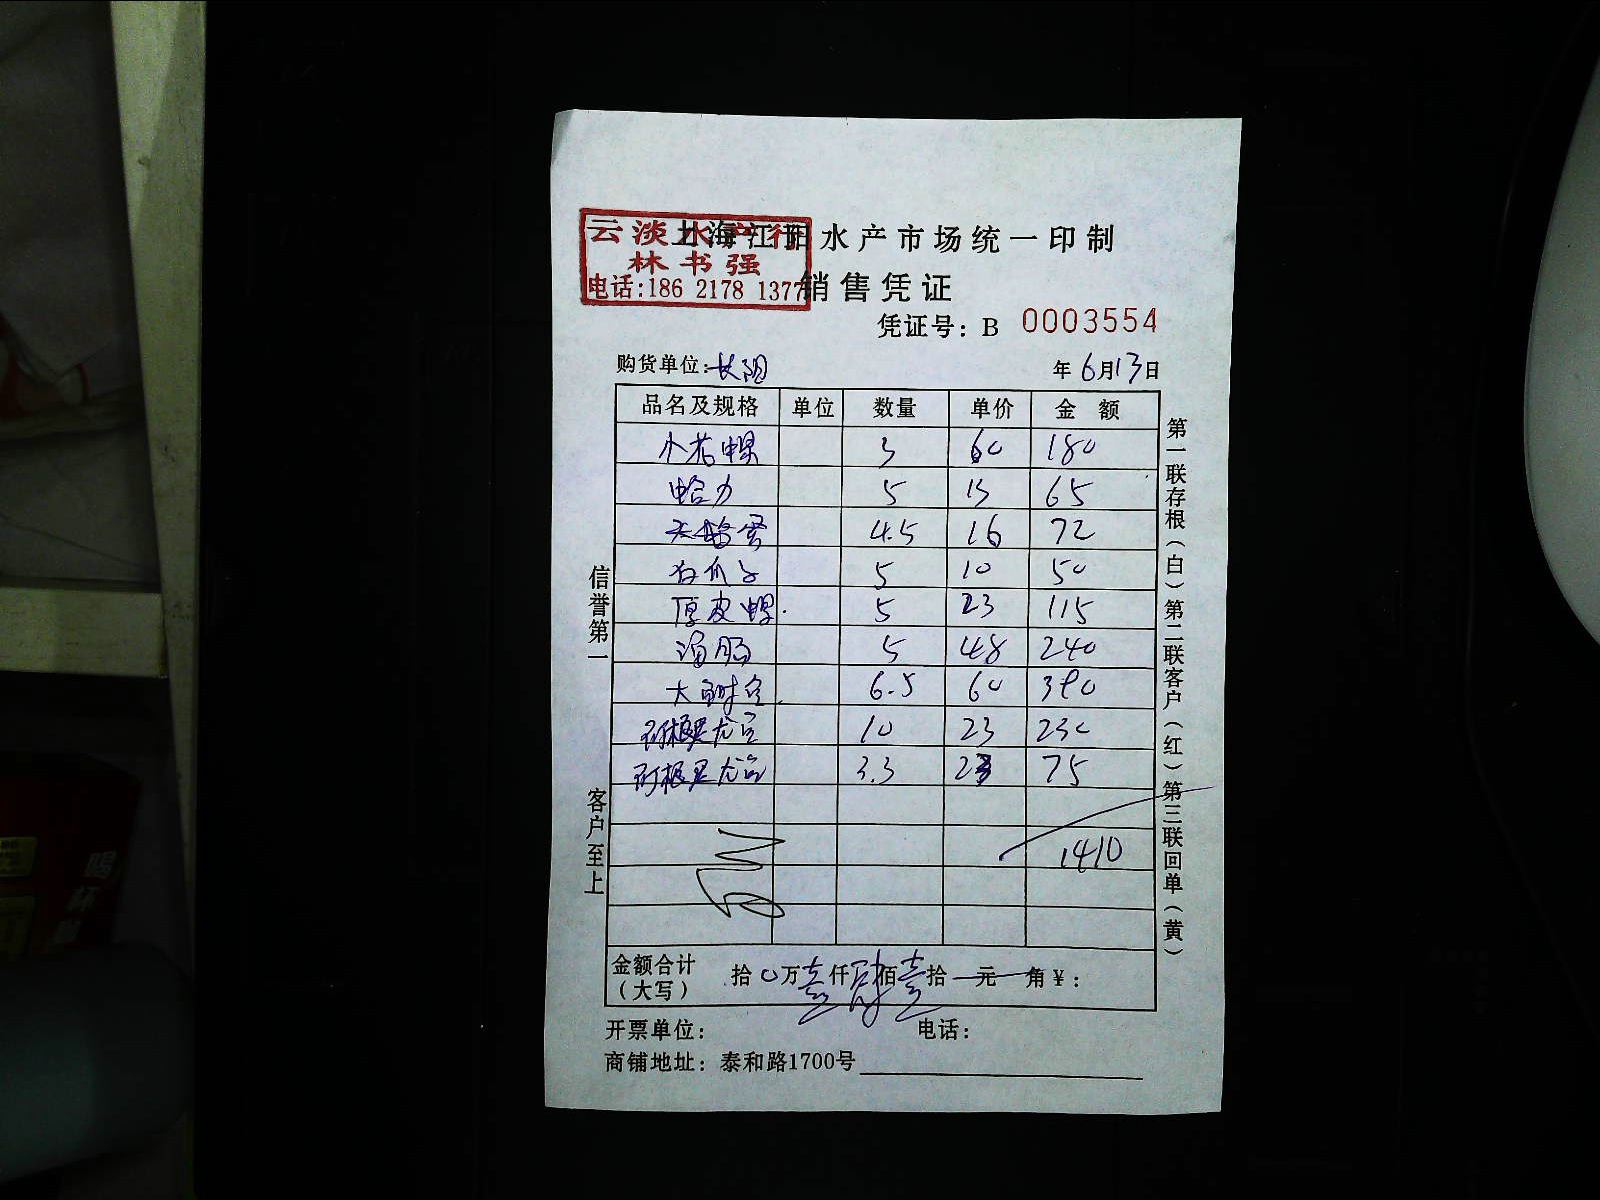 云淡水产行
上海江阳水产市场统一印制
林书强
电话:186 2178 1377
销售凭证
凭证号: B 0003554
购货单位: 长阳
年 6月13日
品名及规格 单位 数量 单价 金额
3 60 180
蛤力 5 13 65
4.5 16 72
5 10 50
厚皮 5 23 115
5 48 240
大 6.5 60 390
阿根廷 10 23 230
阿根廷 3.3 23 75
1410
金额合计(大写) 拾0万壹仟肆佰壹拾元角¥:
开票单位: 电话:
商铺地址: 泰和路1700号
信誉第一 客户至上
第一联存根(白)第二联客户(红)第三联回单(黄)
喝杯